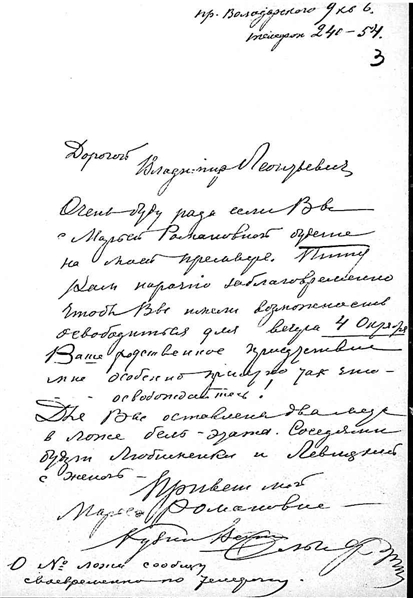 пр. Володарского 9 кв 6.
телефон 240-54.
3
Дорогой
Владимир Леонтьевич
Очень буду рада если Вы
с Марьей Романовной будете
на моей премьере. Пишу
Вам нарочно заблаговременно
чтоб Вы имели возможность
освободиться для вечера 4 Октября
Ваше родственное присутствие
мне особенно приятно так что -
- - освобождайтесь!
Для Вас оставлена два места
в ложе бель-этажа. Соседями
будут Любименки и Левицкий
с женой -
Привет мой
Марье Романовне -
О № ложи сообщу
своевременно по телефону.